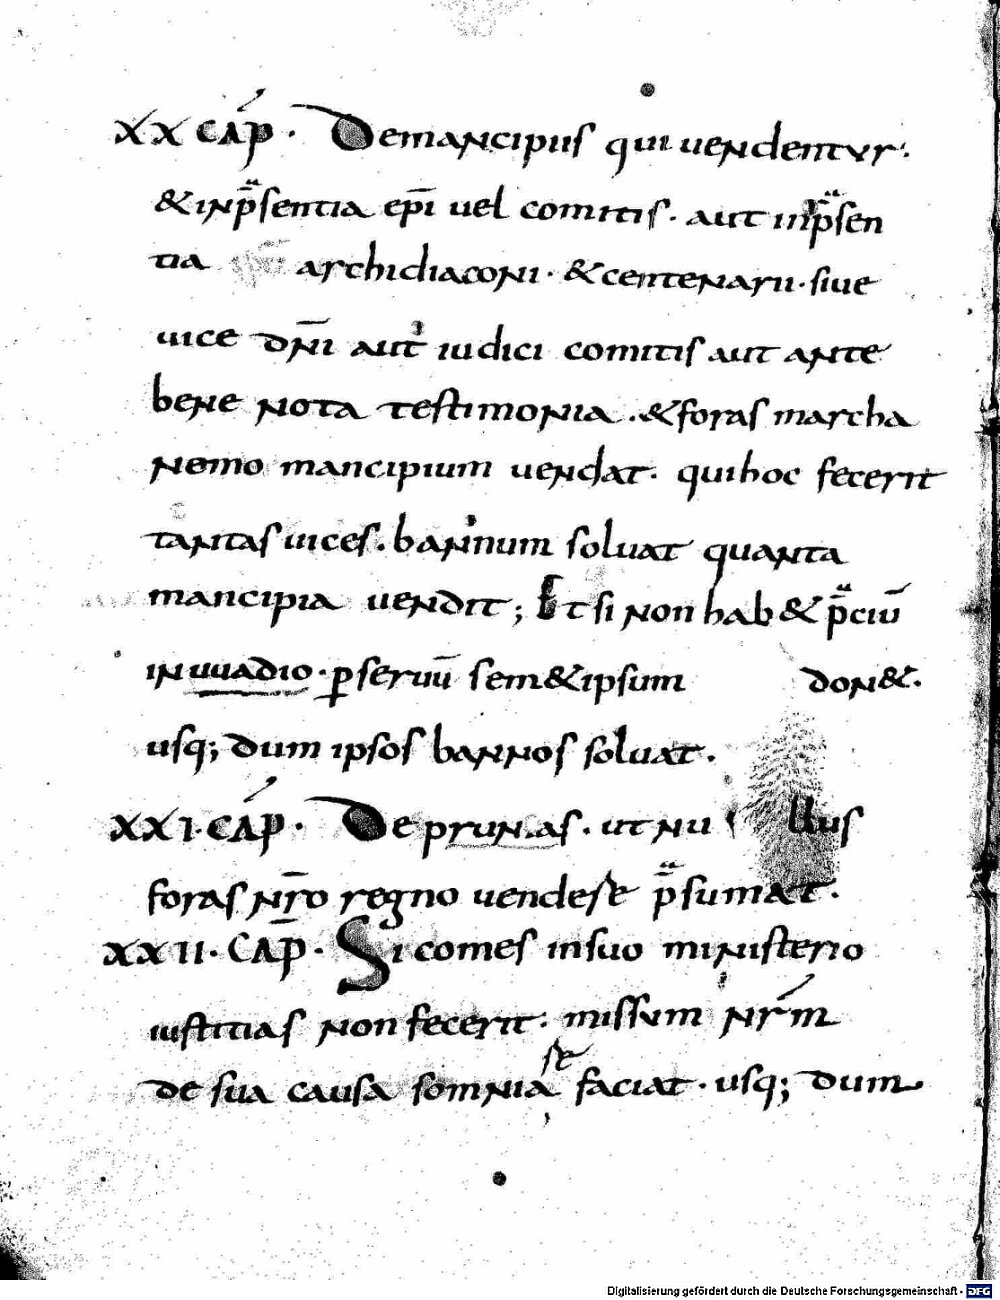 XX CAP̄. Demancipiis qui uendentur.
& inp̄sentia ep̄i uel comitis. aut inp̄sen
tia archidiaconi. & centenarii. siue
uice dn̄i aut iudici comitis aut ante
bene nota testimonia. & foras marcha
nemo mancipium uendat. quihoc fecerit
tantas uices. bannum soluat quanta
mancipia uendit; Et si non hab& p̄ciū
in uuadio. ꝑseruū sem&ipsum don&.
usq; dum ipsos bannos soluat.
XXI. CAP̄. De prunias. ut nullus
foras nr̄o regno uendese p̄sumat.
XXII. CAP̄. Si comes insuo ministerio
iustitias non fecerit. missum nr̄m
de sua causa somnia se faciat. usq; dum
Digitalisierung gefördert durch die Deutsche Forschungsgemeinschaft - DFG